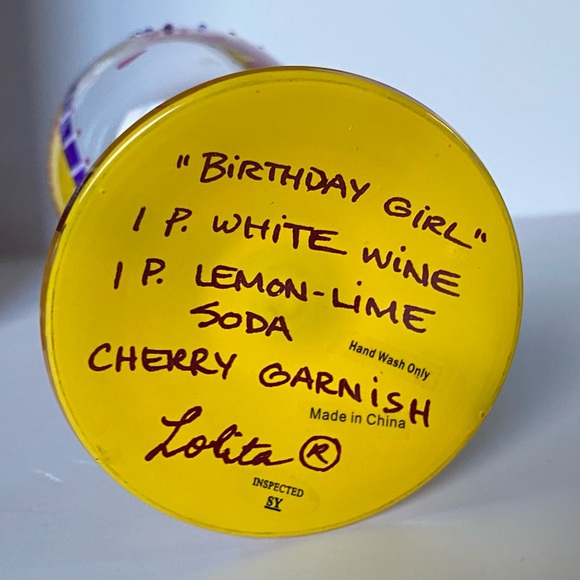 "BiRTHDAY GiRL"
1 P. WHiTE WiNE
1 P. LEMON-LiME
SODA
Hand Wash Only
CHERRY GARNiSH
Made in China
Lolita ®
INSPECTED
SY